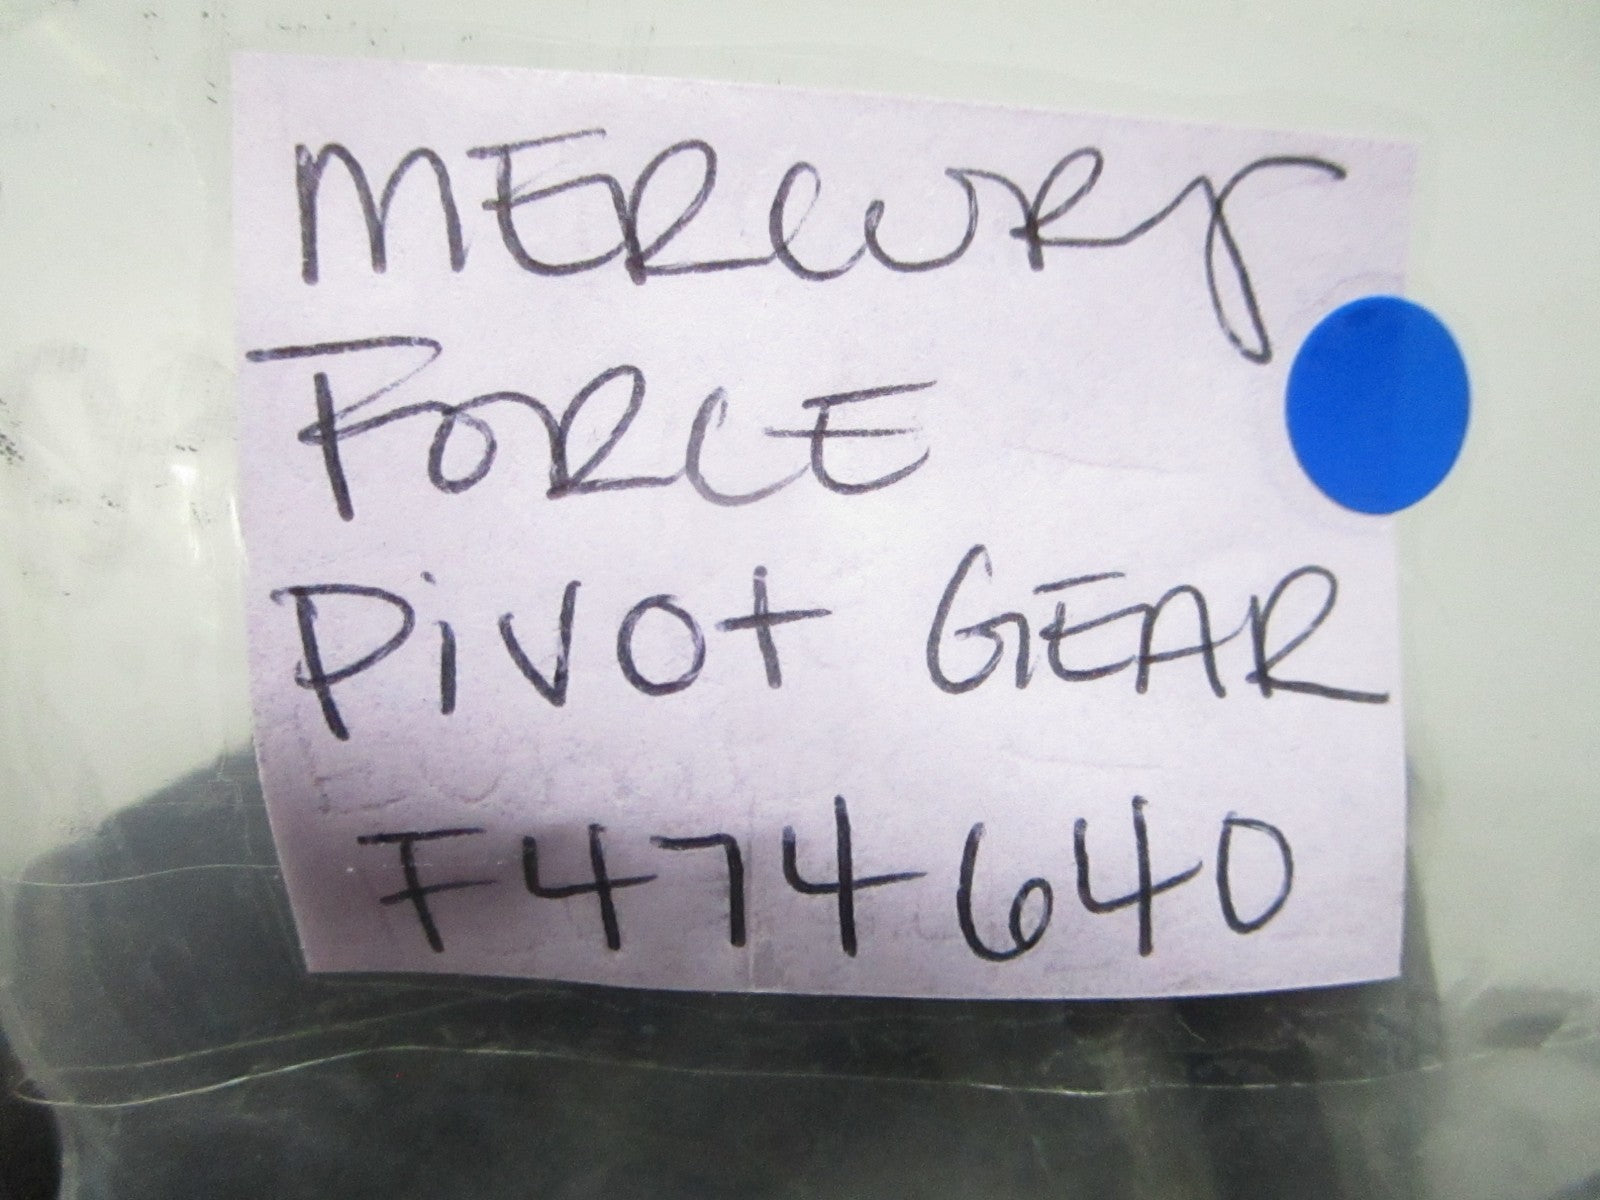 MERCURY
FORCE
PiVOt GEAR
F474640